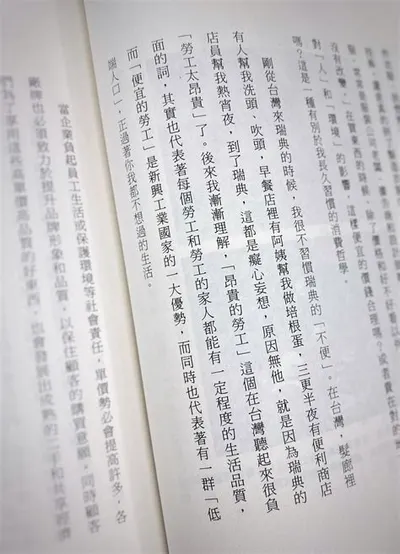 沒有改變。」在買東西的時候,除了價格和
對「人」和「環境」的影響,這樣便宜的價錢合理嗎?或者貴在對的
嗎?這是一種有別於我長久習慣的消費哲學。
剛從台灣來瑞典的時候,我很不習慣瑞典的「不便」。在台灣,髮廊裡
有人幫我洗頭、吹頭,早餐店裡有阿姨幫我做培根蛋,三更半夜有便利商店
店員幫我熱宵夜,到了瑞典,這都是癡心妄想,原因無他,就是因為瑞典的
「勞工太昂貴」了。後來我漸漸理解,「昂貴的勞工」這個在台灣聽起來很負
面的詞,其實也代表著每個勞工和勞工的家人都能有一定程度的生活品質,
而「便宜的勞工」是新興工業國家的一大優勢,而同時也代表著有一群「低
端人口」,正過著你我都不想過的生活。
當企業負起員工生活或保護環境等社會責任,單價勢必會提高許多,各
廠牌也必須致力於提升品牌形象和品質,以保住顧客的購買意願。同時顧客
們為了享 高單價 品質的好東西,也會發展出成熟的二手和共享經濟